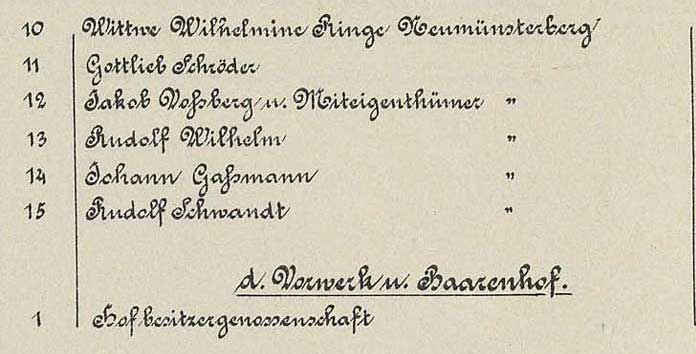 10 Wittwe Wilhelmine Ringe Neumünsterberg
11 Gottlieb Schröder
12 Jakob Voßberg u. Miteigenthümer "
13 Rudolf Wilhelm "
14 Johann Gaßmann "
15 Rudolf Schwandt "
d. Vorwerk u. Baarenhof.
1 Hofbesitzergenossenschaft